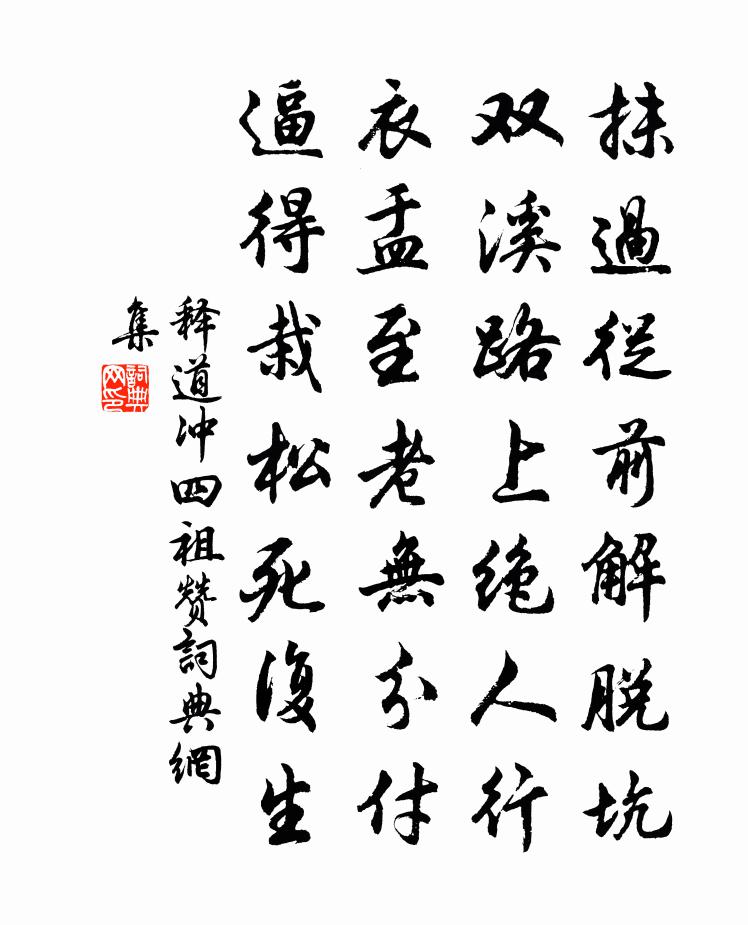 抹過從前解脱坑
双溪路上绝人行
衣盂至老無分付
逼得栽松死復生
释道冲四祖赞詞典網
集
詞典
网印